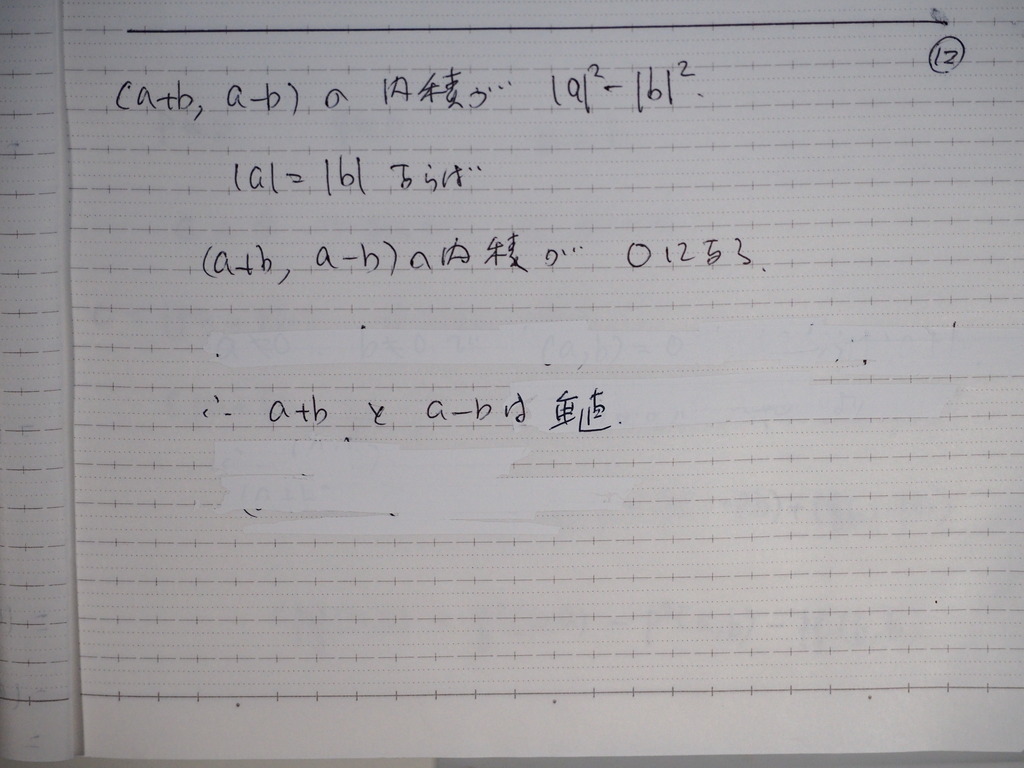 ⑫
(a+b, a-b) の 内積が |a|²-|b|².
|a|=|b| ならば
(a+b, a-b)の内積が 0になる.
∴ a+b と a-bは 垂直.